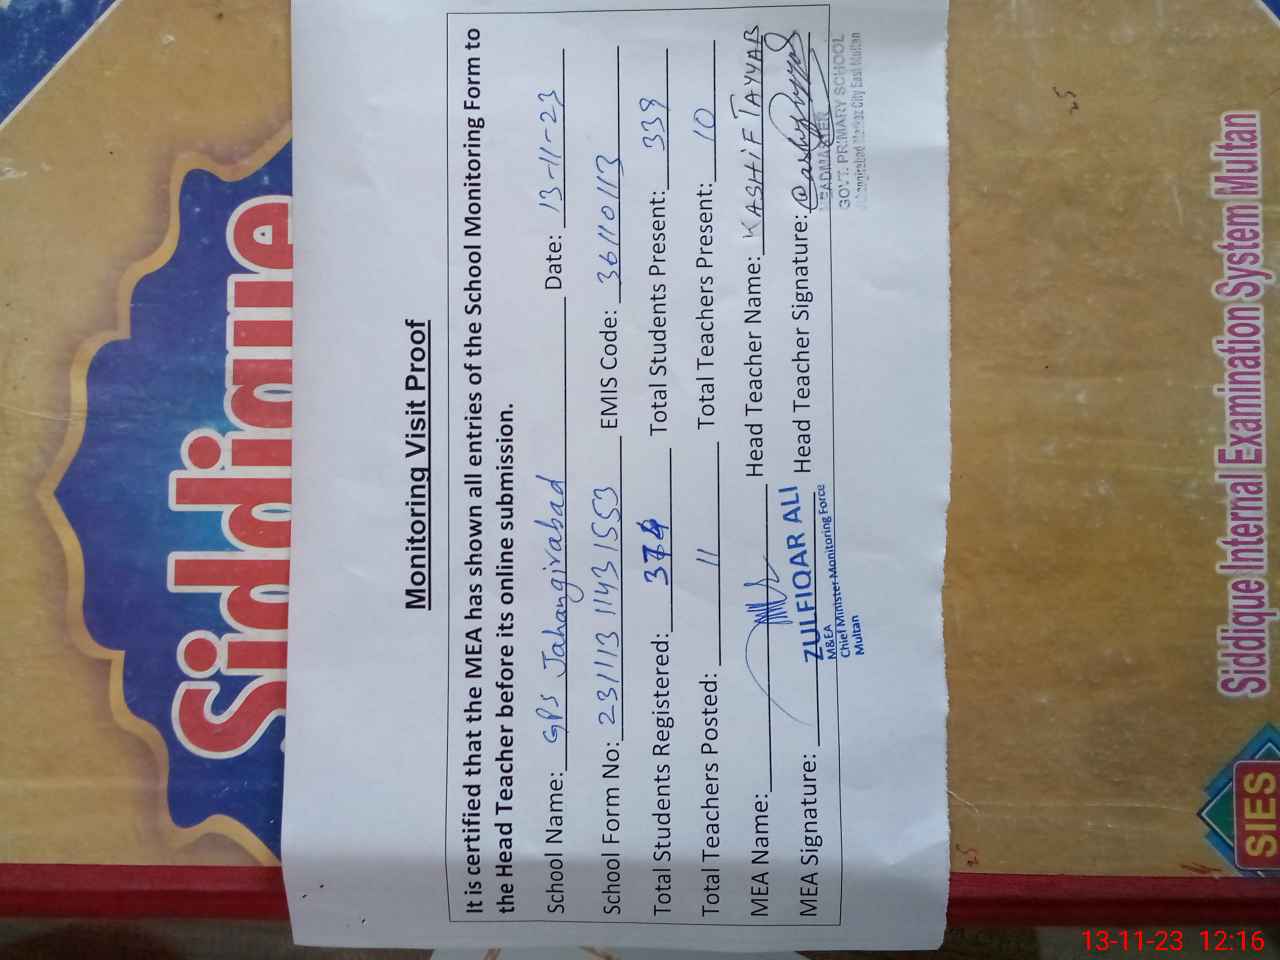 Siddique
Monitoring Visit Proof
It is certified that the MEA has shown all entries of the School Monitoring Form to
the Head Teacher before its online submission.
School Name: GPS Jahangirabad Date: 13-11-23
School Form No: 231113 1143 1553 EMIS Code: 36110113
Total Students Registered: 374 Total Students Present: 339
Total Teachers Posted: 11 Total Teachers Present: 10
MEA Name: Head Teacher Name: KASHIF TAYYAB
MEA Signature: Head Teacher Signature:
ZULFIQAR ALI
M&EA
Chief Minister Monitoring Force
Multan
HEADMASTER
GOVT. PRIMARY SCHOOL
Jahangirabad Markaz City East Multan
SIES
Siddique Internal Examination System Multan
13-11-23 12:16